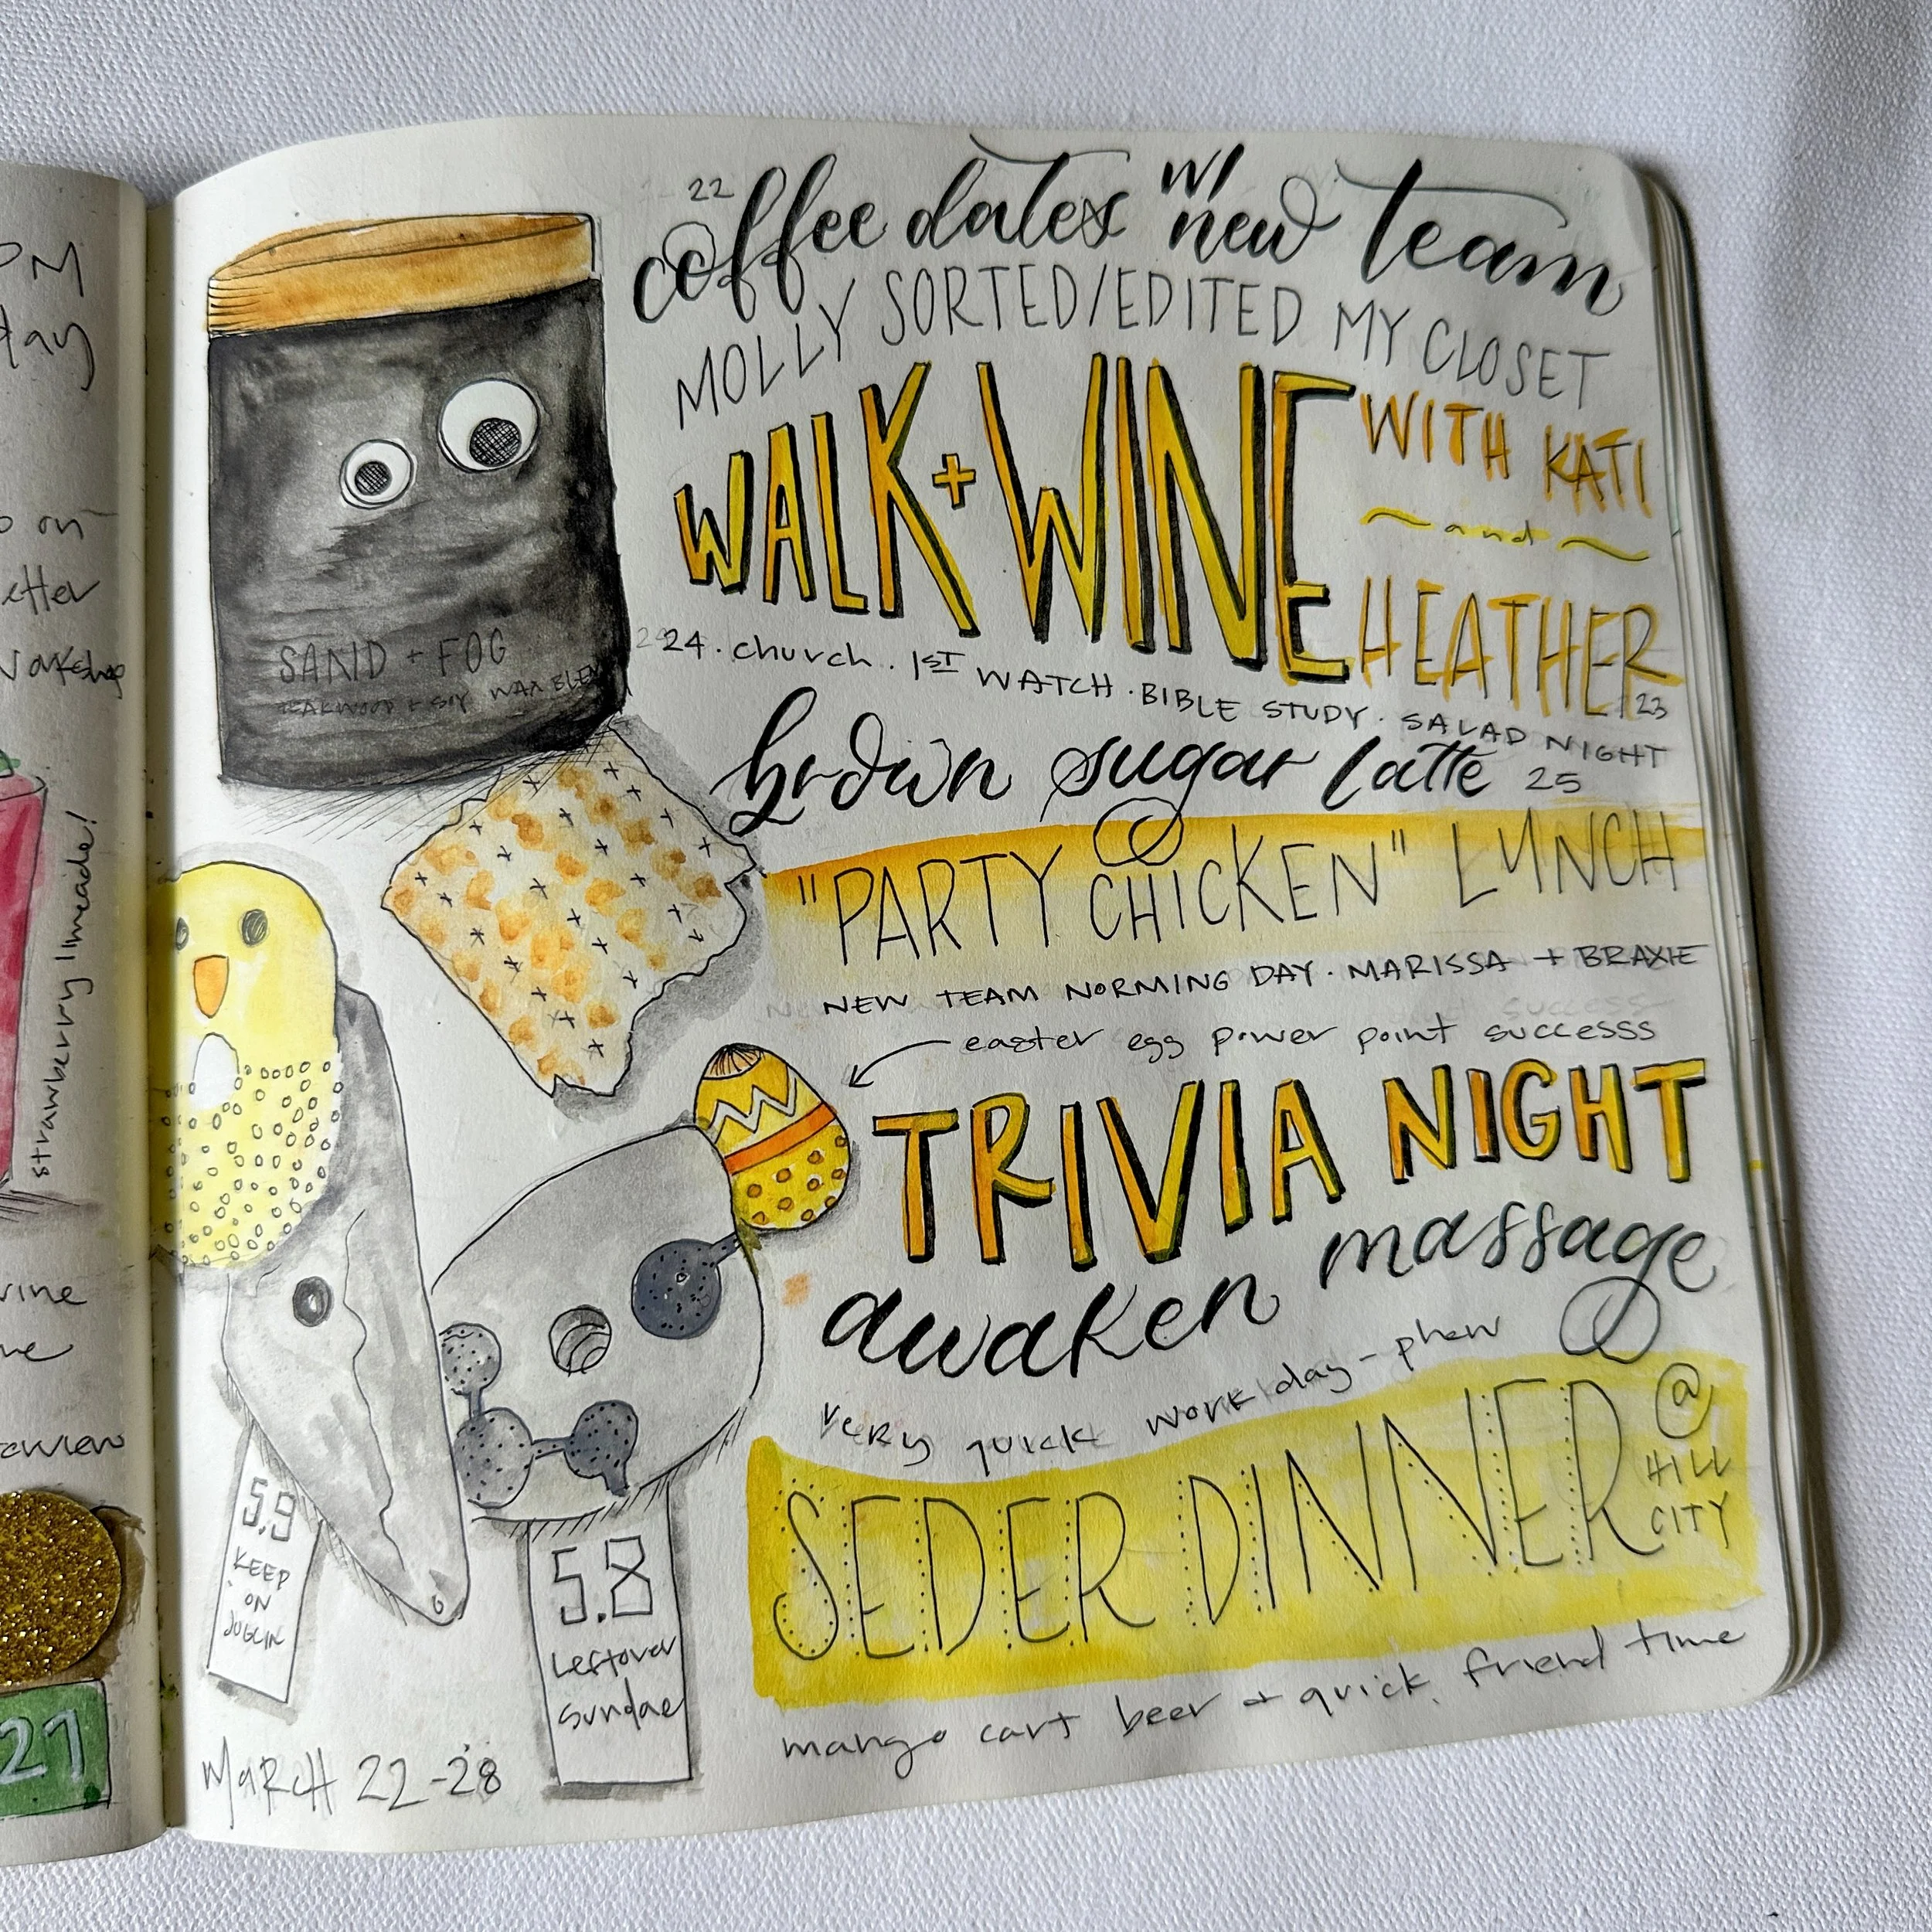 PM
day
on
etter
strawberry limeade!
21
22
coffee dates w/ new team
MOLLY SORTED/EDITED MY CLOSET
WALK + WINE WITH KATI
and
HEATHER
23
24. church. 1ST WATCH. BIBLE STUDY. SALAD NIGHT
brown sugar latte 25
"PARTY CHICKEN" LUNCH
NEW TEAM NORMING DAY. MARISSA + BRAXIE
easter egg power point successs
TRIVIA NIGHT
awaken massage
very quick work day - phew
SEDER DINNER @ HILL CITY
mango cart beer + quick friend time
SAND + FOG
TEAKWOOD + SOY WAX BLEND
5.9
KEEP
ON
JUGGIN
5.8
Leftover
Sundae
MARCH 22-28